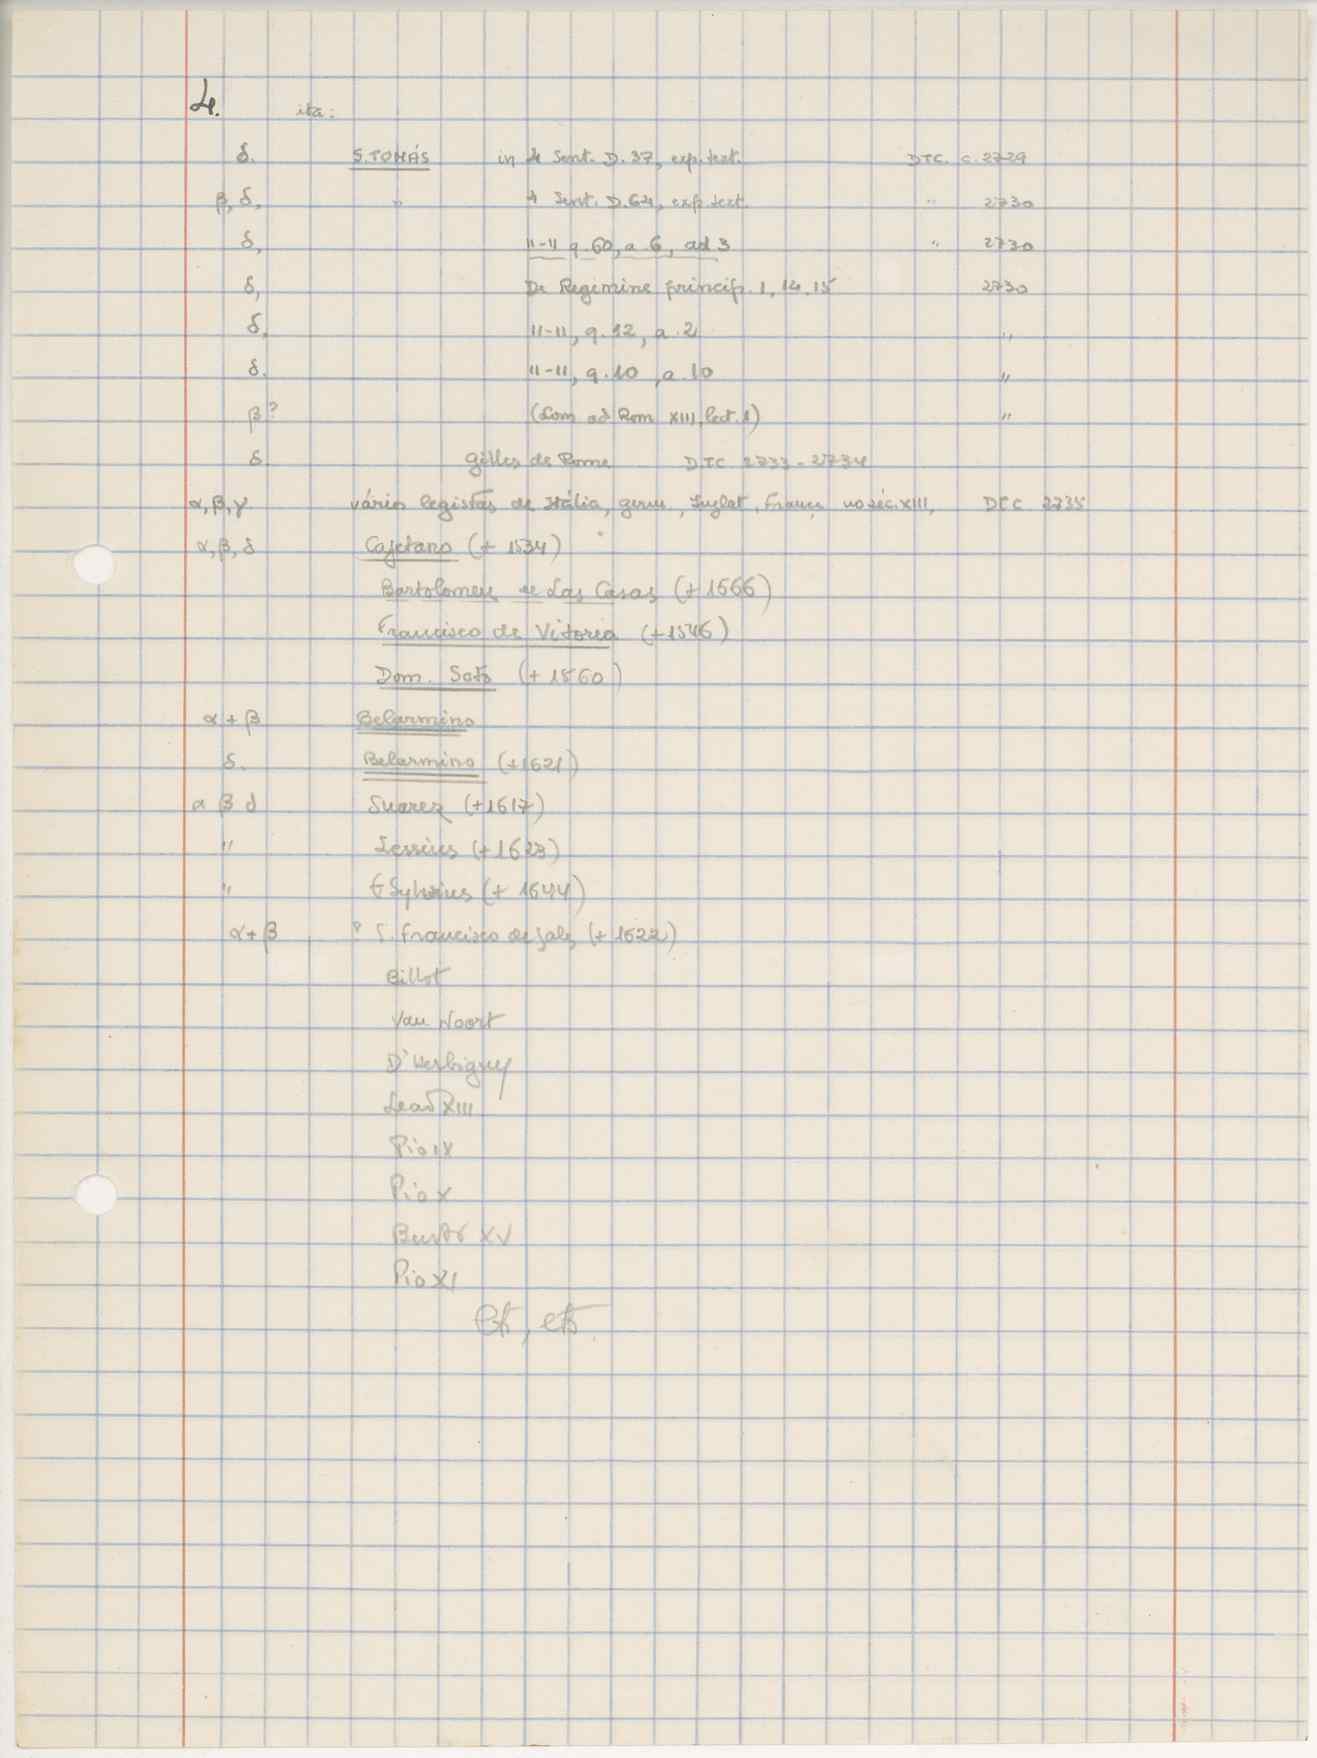 4. ita:
δ. S. TOMÁS in 4 Sent. D. 37, exp. text. DTC. c. 2729
β, δ, " 4 Sent. D. 64, exp. text. " 2730
δ, II-II q. 60, a. 6, ad 3 " 2730
δ, De Regimine princip. 1, 14, 15 2730
δ. II-II, q. 12, a. 2 "
δ. II-II, q. 10, a. 10 "
β? (Com ad Rom XIII, lect. 1) "
δ Gilles de Rome DTC 2733-2734
α, β, γ vários legistas de Itália, germ, Inglat, França no séc. XIII, DTC 2735
α, β, δ Cajetano (+ 1534)
Bartolomeu de Las Casas (+ 1566)
Francisco de Vitoria (+ 1546)
Dom. Soto (+ 1560)
α + β Belarmino
δ. Belarmino (+ 1621)
α β δ Suarez (+ 1617)
" Lessius (+ 1623)
" Sylvius (+ 1644)
α + β ? S. Francisco de Sales (+ 1622)
Billot
Van Noort
D'Herbigny
Leão XIII
Pio IX
Pio X
Bento XV
Pio XI
Etc, etc.